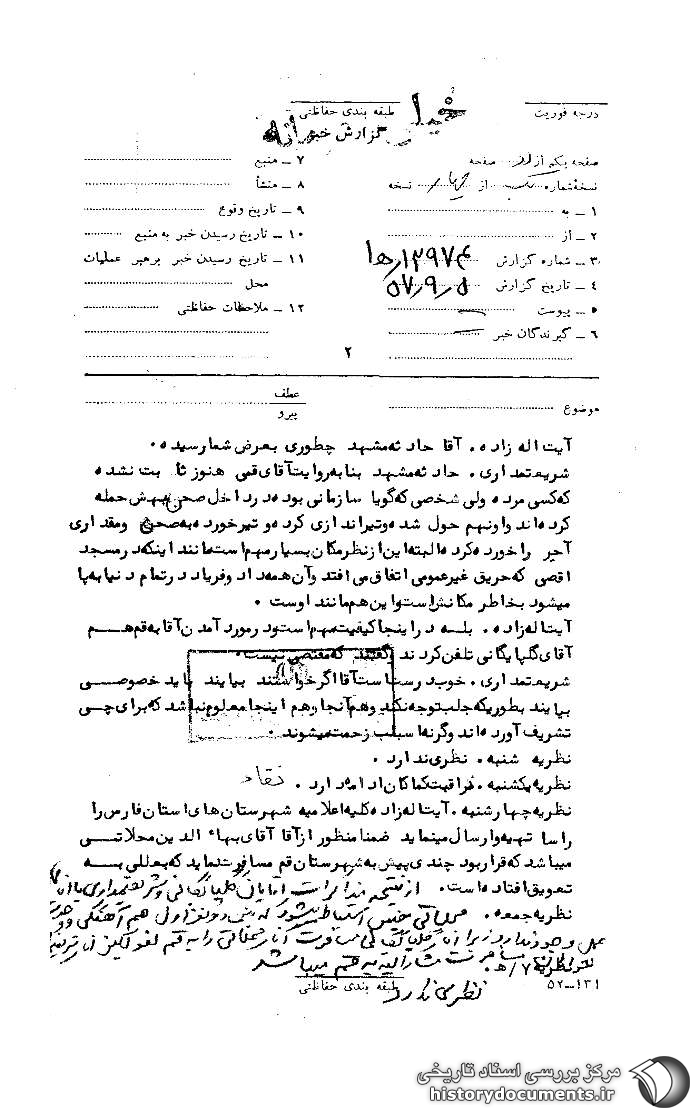 درجه فوریت
طبقه بندی حفاظتی
خیلی محرمانه
گزارش خبر
صفحه یکم از دو صفحه
نسخهٔ شماره یک از چهار نسخه
۱ ـ به
۲ ـ از
۳ ـ شماره گزارش ۱۳۹۷۴/ﻫ۱
٤ ـ تاریخ گزارش ۵۷/۹/۵
۵ ـ پیوست
٦ ـ گیرندگان خبر
۷ ـ منبع
۸ ـ منشأ
۹ ـ تاریخ وقوع
۱۰ ـ تاریخ رسیدن خبر به منبع
۱۱ ـ تاریخ رسیدن خبر برهبر عملیات
محل
۱۲ ـ ملاحظات حفاظتی
۲
موضوع
عطف
پیرو
آیت اله زاده ۰ آقا حادثه مشهد چطوری بعرض شما رسیده ۰
شریعتمداری ۰ حادثه مشهد بنا به روایت آقای قمی هنوز ثابت نشده
که کسی مرده ولی شخصی که گویا سازمانی بوده در داخل صحن بهش حمله
کرده اند و اونهم حول شده و تیراندازی کرده و تیر خورده به صحن و مقداری
آجر را خورده کرده البته این از نظر مکان بسیار مهم است مانند اینکه در مسجد
اقصی که حریق غیر عمومی اتفاق می افتد و آن همه داد و فریاد در تمام دنیا به پا
میشود بخاطر مکانش است و این هم مانند اوست ۰
آیت اله زاده ۰ بله در اینجا کیفیت مهم است و در مورد آمدن آقا به قم هم
آقای گلپایگانی تلفن کردند و گفتند که مقتضی نیست ۰
شریعتمداری ۰ خوب درست است آقا اگر خواستند بیایند باید خصوصی
بیایند بطوریکه جلب توجه نکند و هم آنجا و هم اینجا معلوم نباشد که برای چی
تشریف آورده اند وگرنه اسباب زحمت میشوند ۰
نظریه شنبه ۰ نظری ندارد ۰
نظریه یکشنبه ۰ مراقبت کماکان ادامه دارد ۰
نظریه چهارشنبه ۰ آیت اله زاده کلیه اعلامیه شهرستان های استان فارس را
راسا تهیه و ارسال مینماید ضمنا منظور از آقا آقای بهاء الدین محلاتی
میباشد که قرار بود چندی پیش به شهرستان قم مسافرت نماید که بعللی به
تعویق افتاده است ۰ از نتیجه مذاکرات آقایان گلپایگانی و شریعتمداری با آقای
نظریه جمعه ۰ محلاتی چنین استنباط میشود که بین دو نفر اول هم آهنگی و وحدت
عمل وجود ندارد زیرا آقای گلپایگانی مسافرت آقای محلاتی را به قم
مسافرت مشارالیه به قم میباشد
نظریه ۷/ﻫ
نظری ندارد
طبقه بندی حفاظتی
۱۳۱–۵۲
مرکز بررسی اسناد تاریخی
historydocuments.ir